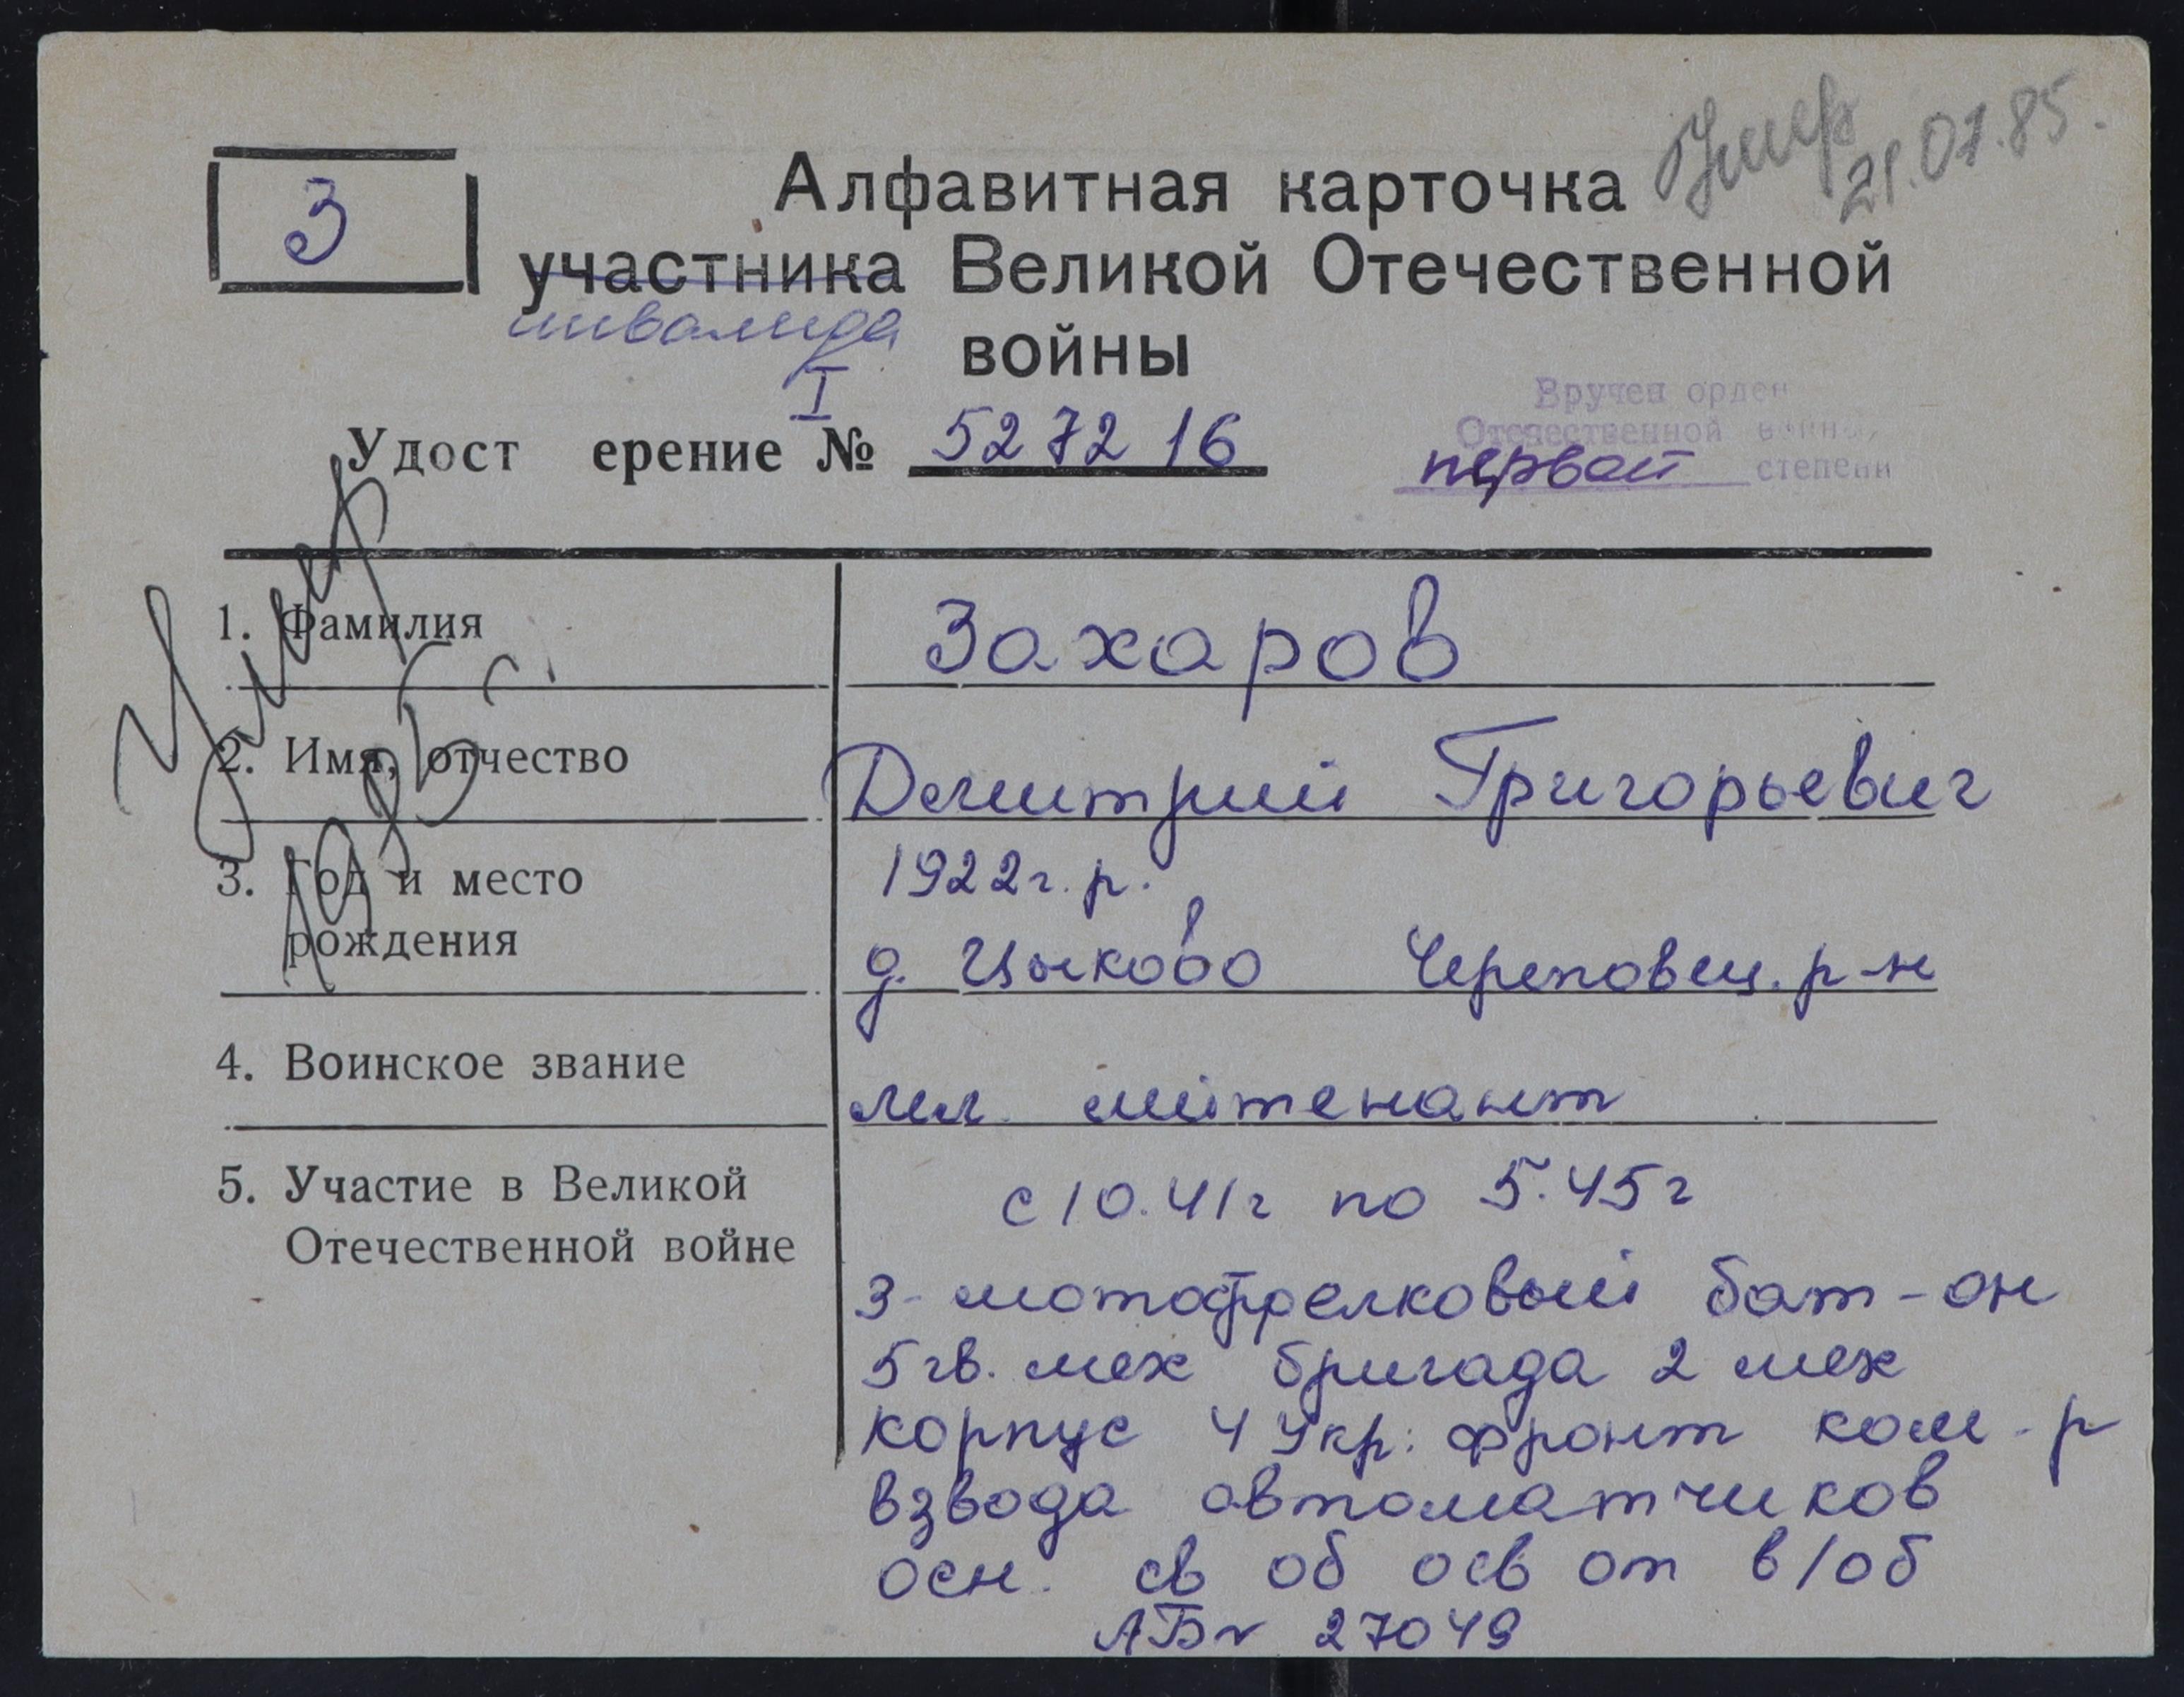 Умер
21.01.85.
З
Алфавитная карточка
участника Великой Отечественной
инвалида
войны
I
Удост ерение № 527216
Вручен орден
Отечественной войны,
первой степени
Умер
1985 г.
1. Фамилия Захаров
2. Имя, отчество Дмитрий Григорьевич
3. Год и место 1922г.р.
рождения д. Цыково Череповец. р-н
4. Воинское звание мл. лейтенант
5. Участие в Великой с 10.41г по 5.45г
Отечественной войне
3-мотострелковый бат-он
5 гв. мех бригада 2 мех
корпус 4 Укр. фронт ком-р
взвода автоматчиков
осн. св об осв от в/об
АБ№ 27049